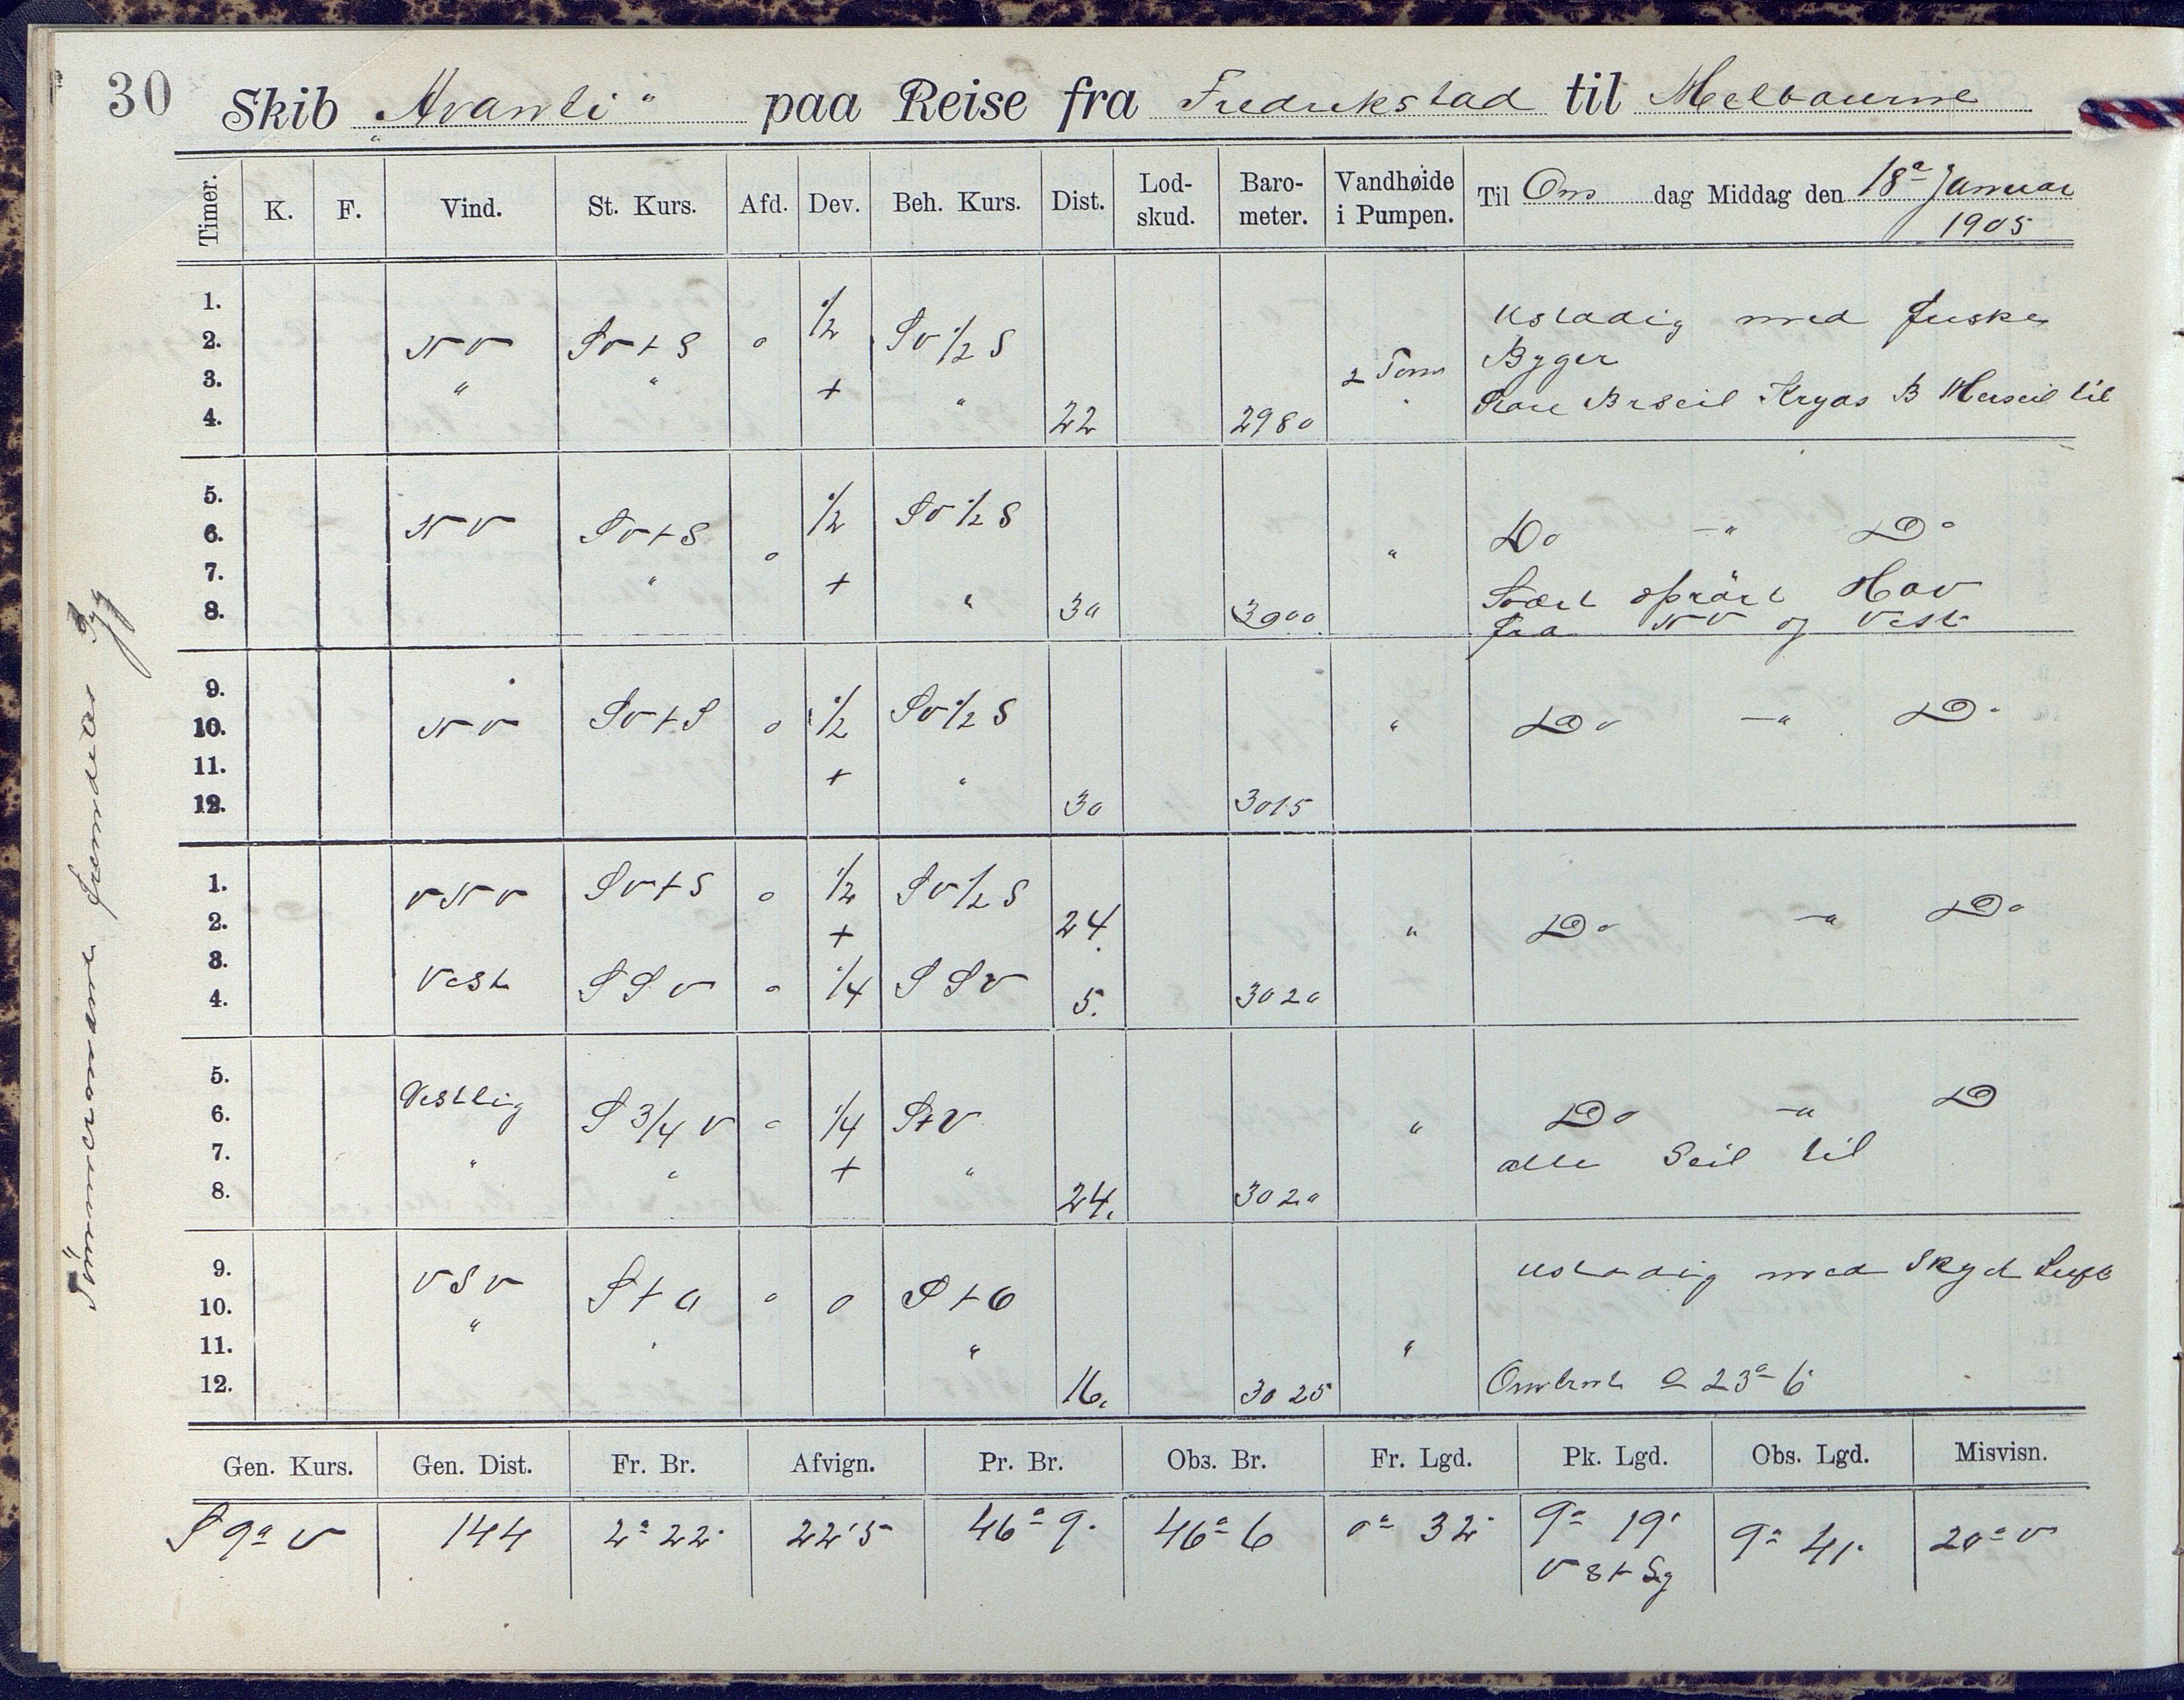 30
Skib „Avanti“ paa Reise fra Fredrikstad til Melbourne
Timer. K. F. Vind. St. Kurs. Afd. Dev. Beh. Kurs. Dist. Lod-skud. Baro-meter. Vandhøide i Pumpen. Til Ons dag Middag den 18de Januar 1905
1. 1/2 Ustadig med friske
2. NV SV t S 0 SV 1/2 S Byger
3. " " + " 2 Tom
4. 22 2980 Merseil til
5. 1/2 SV 1/2 S
6. NV SV t S 0 " Do —"— Do
7. " + " Svært oprört Hav
8. 30 3000 fra NV og Vest
9.
10. NV SV t S 0 1/2 SV 1/2 S " Do —"— Do
11. + "
12. 30 3015
1. VNV SV t S 0 1/2 SV 1/2 S
2. + 24. " Do —"— Do
3.
4. Vest SSV 0 1/4 SSV 5. 3020
5. Vestlig
6. S 3/4 V 0 1/4 S t V " Do —"— Do
7. " " + " alle Seil til
8. 24. 3020
9. VSV Ustadig med Skyet Luft
10. " S t O 0 0 S t O
11. " " "
12. 16. 3025 23 6
Gen. Kurs. Gen. Dist. Fr. Br. Afvign. Pr. Br. Obs. Br. Fr. Lgd. Pk. Lgd. Obs. Lgd. Misvisn.
S 9° V 144 2° 22' 22'5 46° 9' 46° 6 0° 32' 9° 19' 9° 41' 20° V
Tömmermanden fremdeles syg